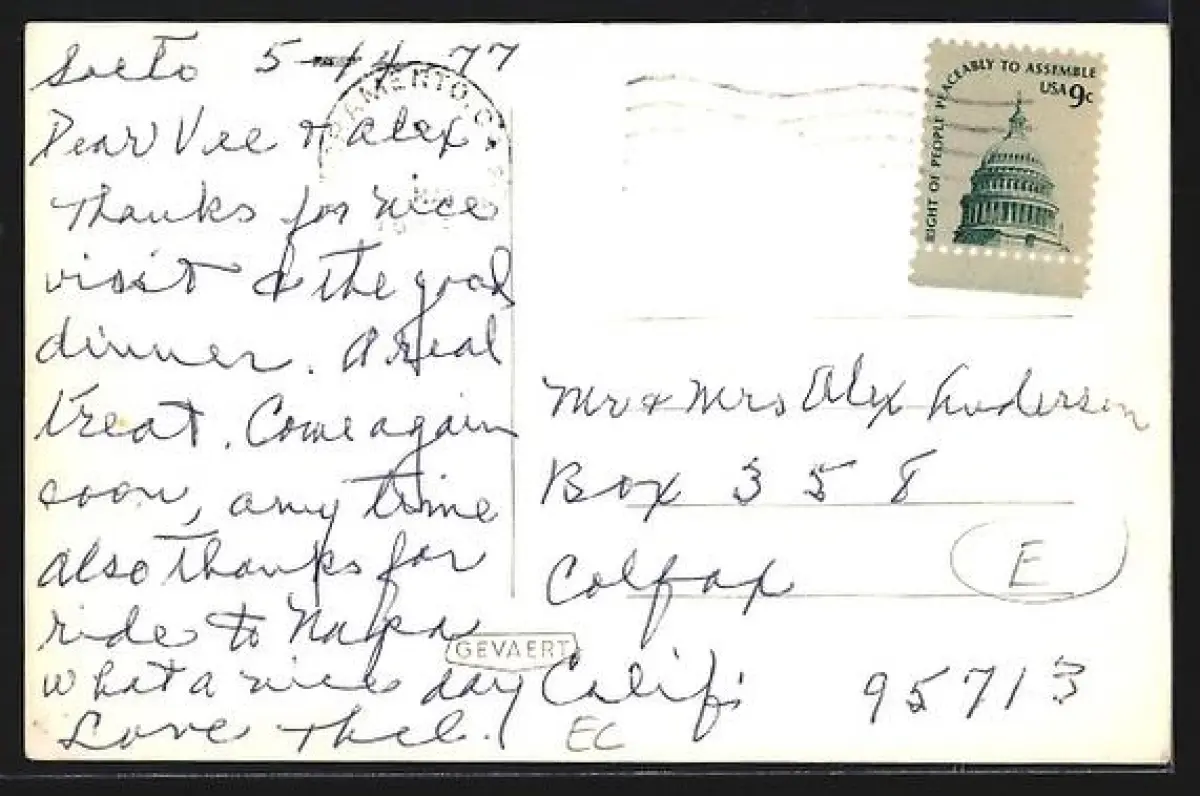 Sacto 5-14-77
Dear Vee & Alex
Thanks for nice
visit & the good
dinner. A real
treat. Come again
soon, any time
also Thanks for
ride to Napa
what a nice day
Love Thel.
RAMENTO, C
RIGHT OF PEOPLE PEACEABLY TO ASSEMBLE
USA 9c
Mr & Mrs Alex Anderson
Box 358
Colfax
Calif.
95713
E
GEVAERT
EC